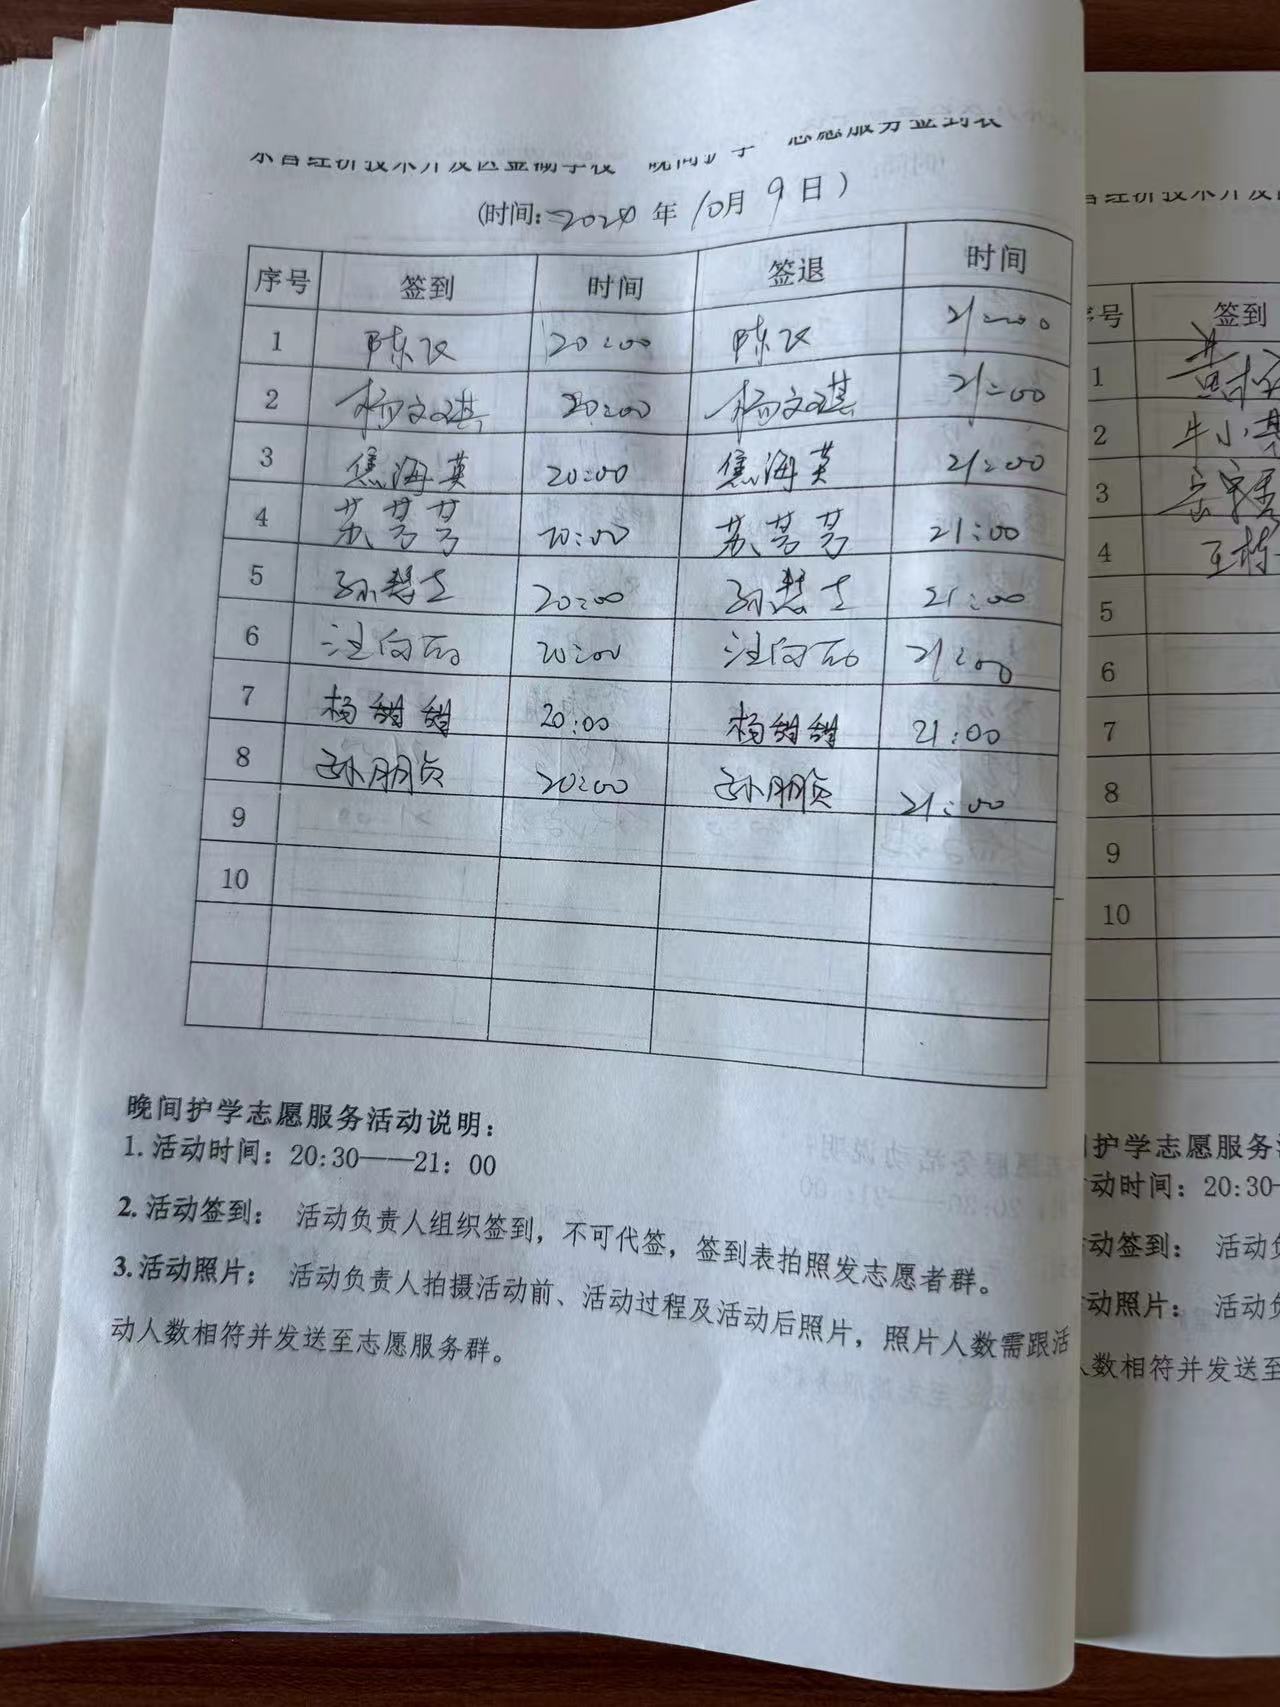 经济技术开发区 学校 晚间护学 志愿服务签到表
(时间: 2024 年 10月 9 日)
序号 签到 时间 签退 时间
1 20:00 21:00
2 杨文琪 20:00 杨文琪 21:00
3 焦海英 20:00 焦海英 21:00
4 苏芳芳 20:00 苏芳芳 21:00
5 20:00 21:00
6 汪向丽 20:00 汪向丽 21:00
7 杨甜甜 20:00 杨甜甜 21:00
8 孙朋贞 20:00 孙朋贞 21:00
9
10
晚间护学志愿服务活动说明:
1.活动时间: 20:30——21: 00
2.活动签到: 活动负责人组织签到，不可代签，签到表拍照发志愿者群。
3.活动照片: 活动负责人拍摄活动前、活动过程及活动后照片，照片人数需跟活
动人数相符并发送至志愿服务群。
号 签到
1
2 牛小
3
4 王栋
5
6
7
8
9
10
护学志愿服务
动时间: 20:30
动签到: 活动
动照片: 活动
人数相符并发送至